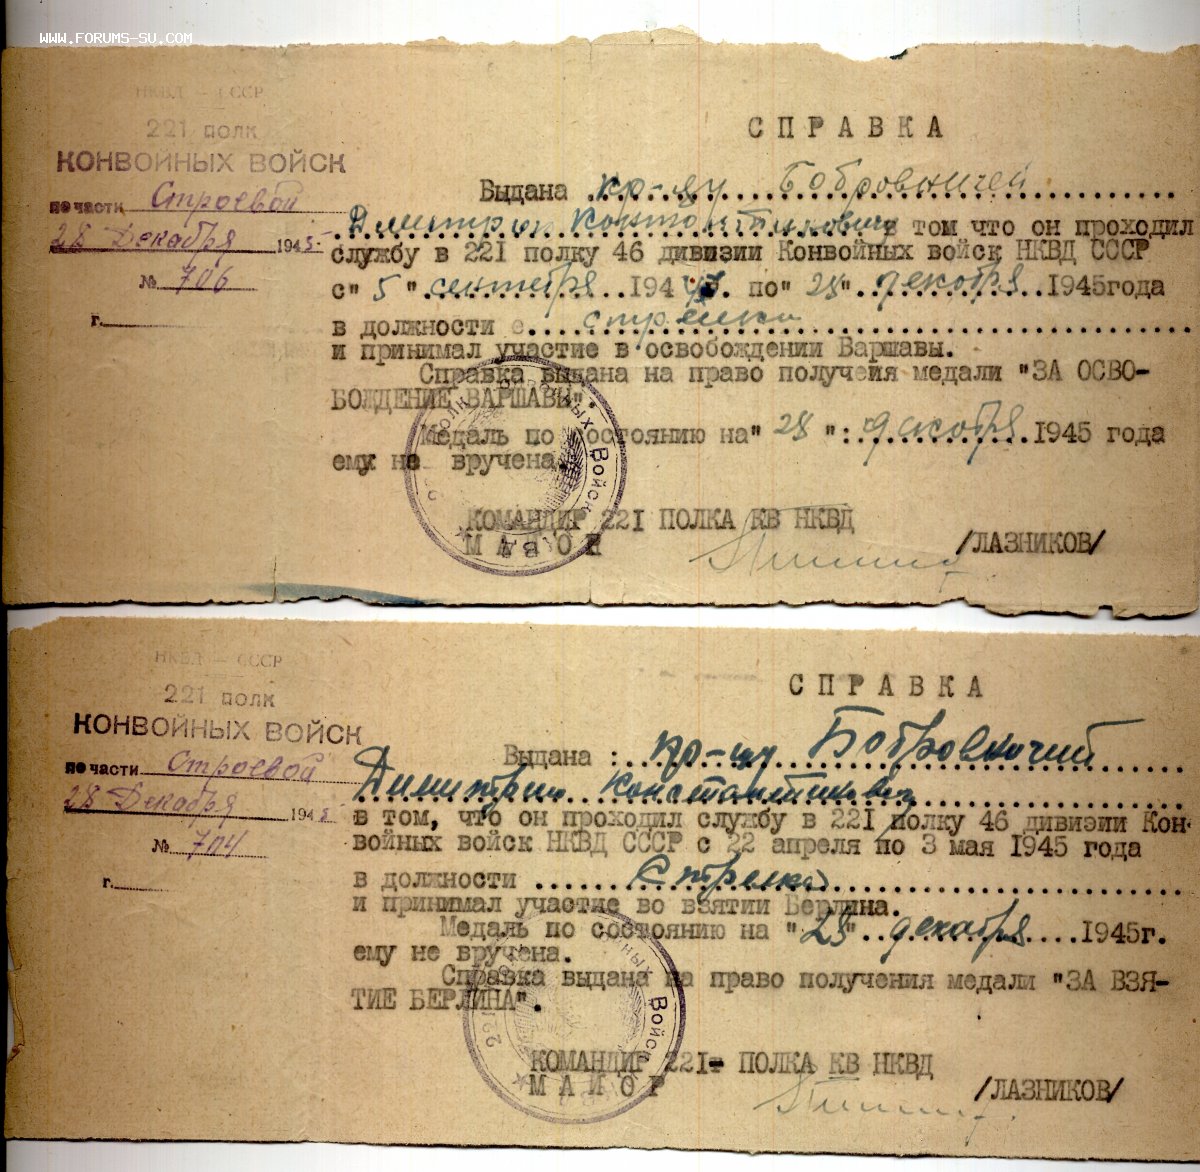 www.forums-su.com
НКВД — СССР
221 полк
КОНВОЙНЫХ ВОЙСК
по части Строевой
28 Декабря 1945
№ 706
г.
СПРАВКА
Выдана кр-цу Бобровничей
Димитрию Константинович в том что он проходил
службу в 221 полку 46 дивизии Конвойных войск НКВД СССР
с" 5 " сентября 194 г. по" 28" декабря 1945года
в должности стрелка
и принимал участие в освобождении Варшавы.
Справка выдана на право получейия медали "ЗА ОСВО-
БОЖДЕНИЕ ВАРШАВЫ".
Медаль по состоянию на" 28 ": декабря 1945 года
ему не вручена.
КОМАНДИР 221 ПОЛКА КВ НКВД
МАЙОР /ЛАЗНИКОВ/
НКВД — СССР
221 полк
КОНВОЙНЫХ ВОЙСК
по части Строевой
28 Декабря 1945
№ 704
г.
СПРАВКА
Выдана : кр-цу Бобровничий
Димитрию Константинович
в том, что он проходил службу в 221 полку 46 дивизии Кон-
войных войск НКВД СССР с 22 апреля по 3 мая 1945 года
в должности Стрелка
и принимал участие во взятии Берлина.
Медаль по состоянию на "28" декабря 1945г.
ему не вручена.
Справка выдана на право получения медали "ЗА ВЗЯ-
ТИЕ БЕРЛИНА".
КОМАНДИР 221- ПОЛКА КВ НКВД
МАЙОР /ЛАЗНИКОВ/